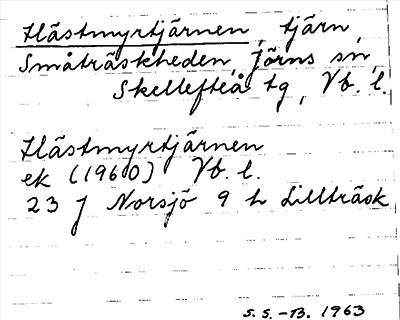 Hästmyrtjärnen, tjärn,
Småträskheden, Jörns sn,
Skellefteå tg, Vb. l.
Hästmyrtjärnen
ek (1960) Vb. l.
23 J Norsjö 9 h Lillträsk
S.S.-B. 1963